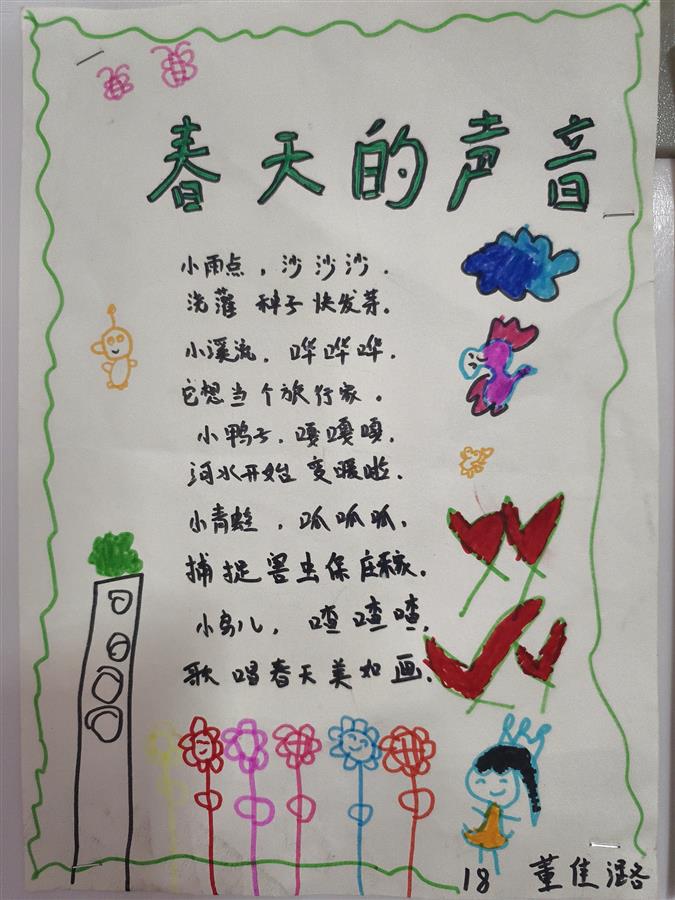 春天的声音
小雨点，沙沙沙．
浇灌种子快发芽．
小溪流，哗哗哗．
它想当个旅行家．
小鸭子，嘎嘎嘎．
河水开始变暖啦．
小青蛙，呱呱呱．
捕捉害虫保庄稼．
小鸟儿，喳喳喳．
歌唱春天美如画．
18 董佳潞